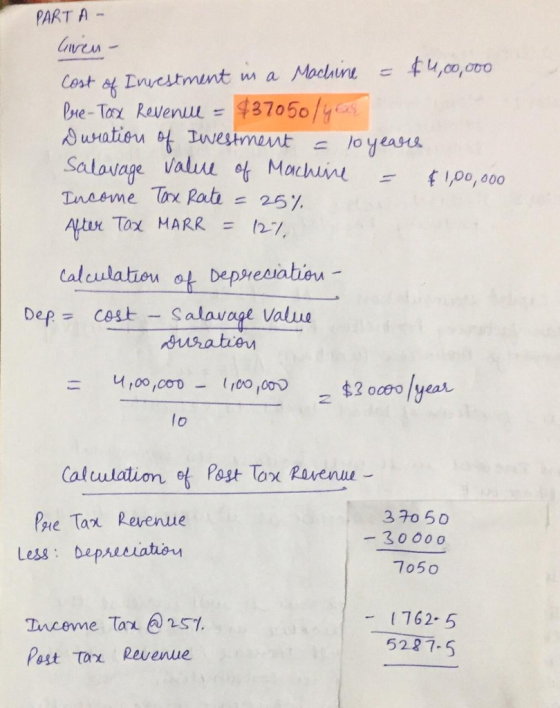 PART A -
Given -
Cost of Investment in a Machine = $4,00,000
Pre-Tax Revenue = $37050/year
Duration of Investment = 10 years
Salavage Value of Machine = $1,00,000
Income Tax Rate = 25%
After Tax MARR = 12%
Calculation of Depreciation -
Dep. = Cost - Salavage Value
Duration
= 4,00,000 - 1,00,000 = $30000/year
10
Calculation of Post Tax Revenue -
Pre Tax Revenue 37050
Less: Depreciation -30000
7050
Income Tax @ 25% - 1762.5
Post Tax Revenue 5287.5